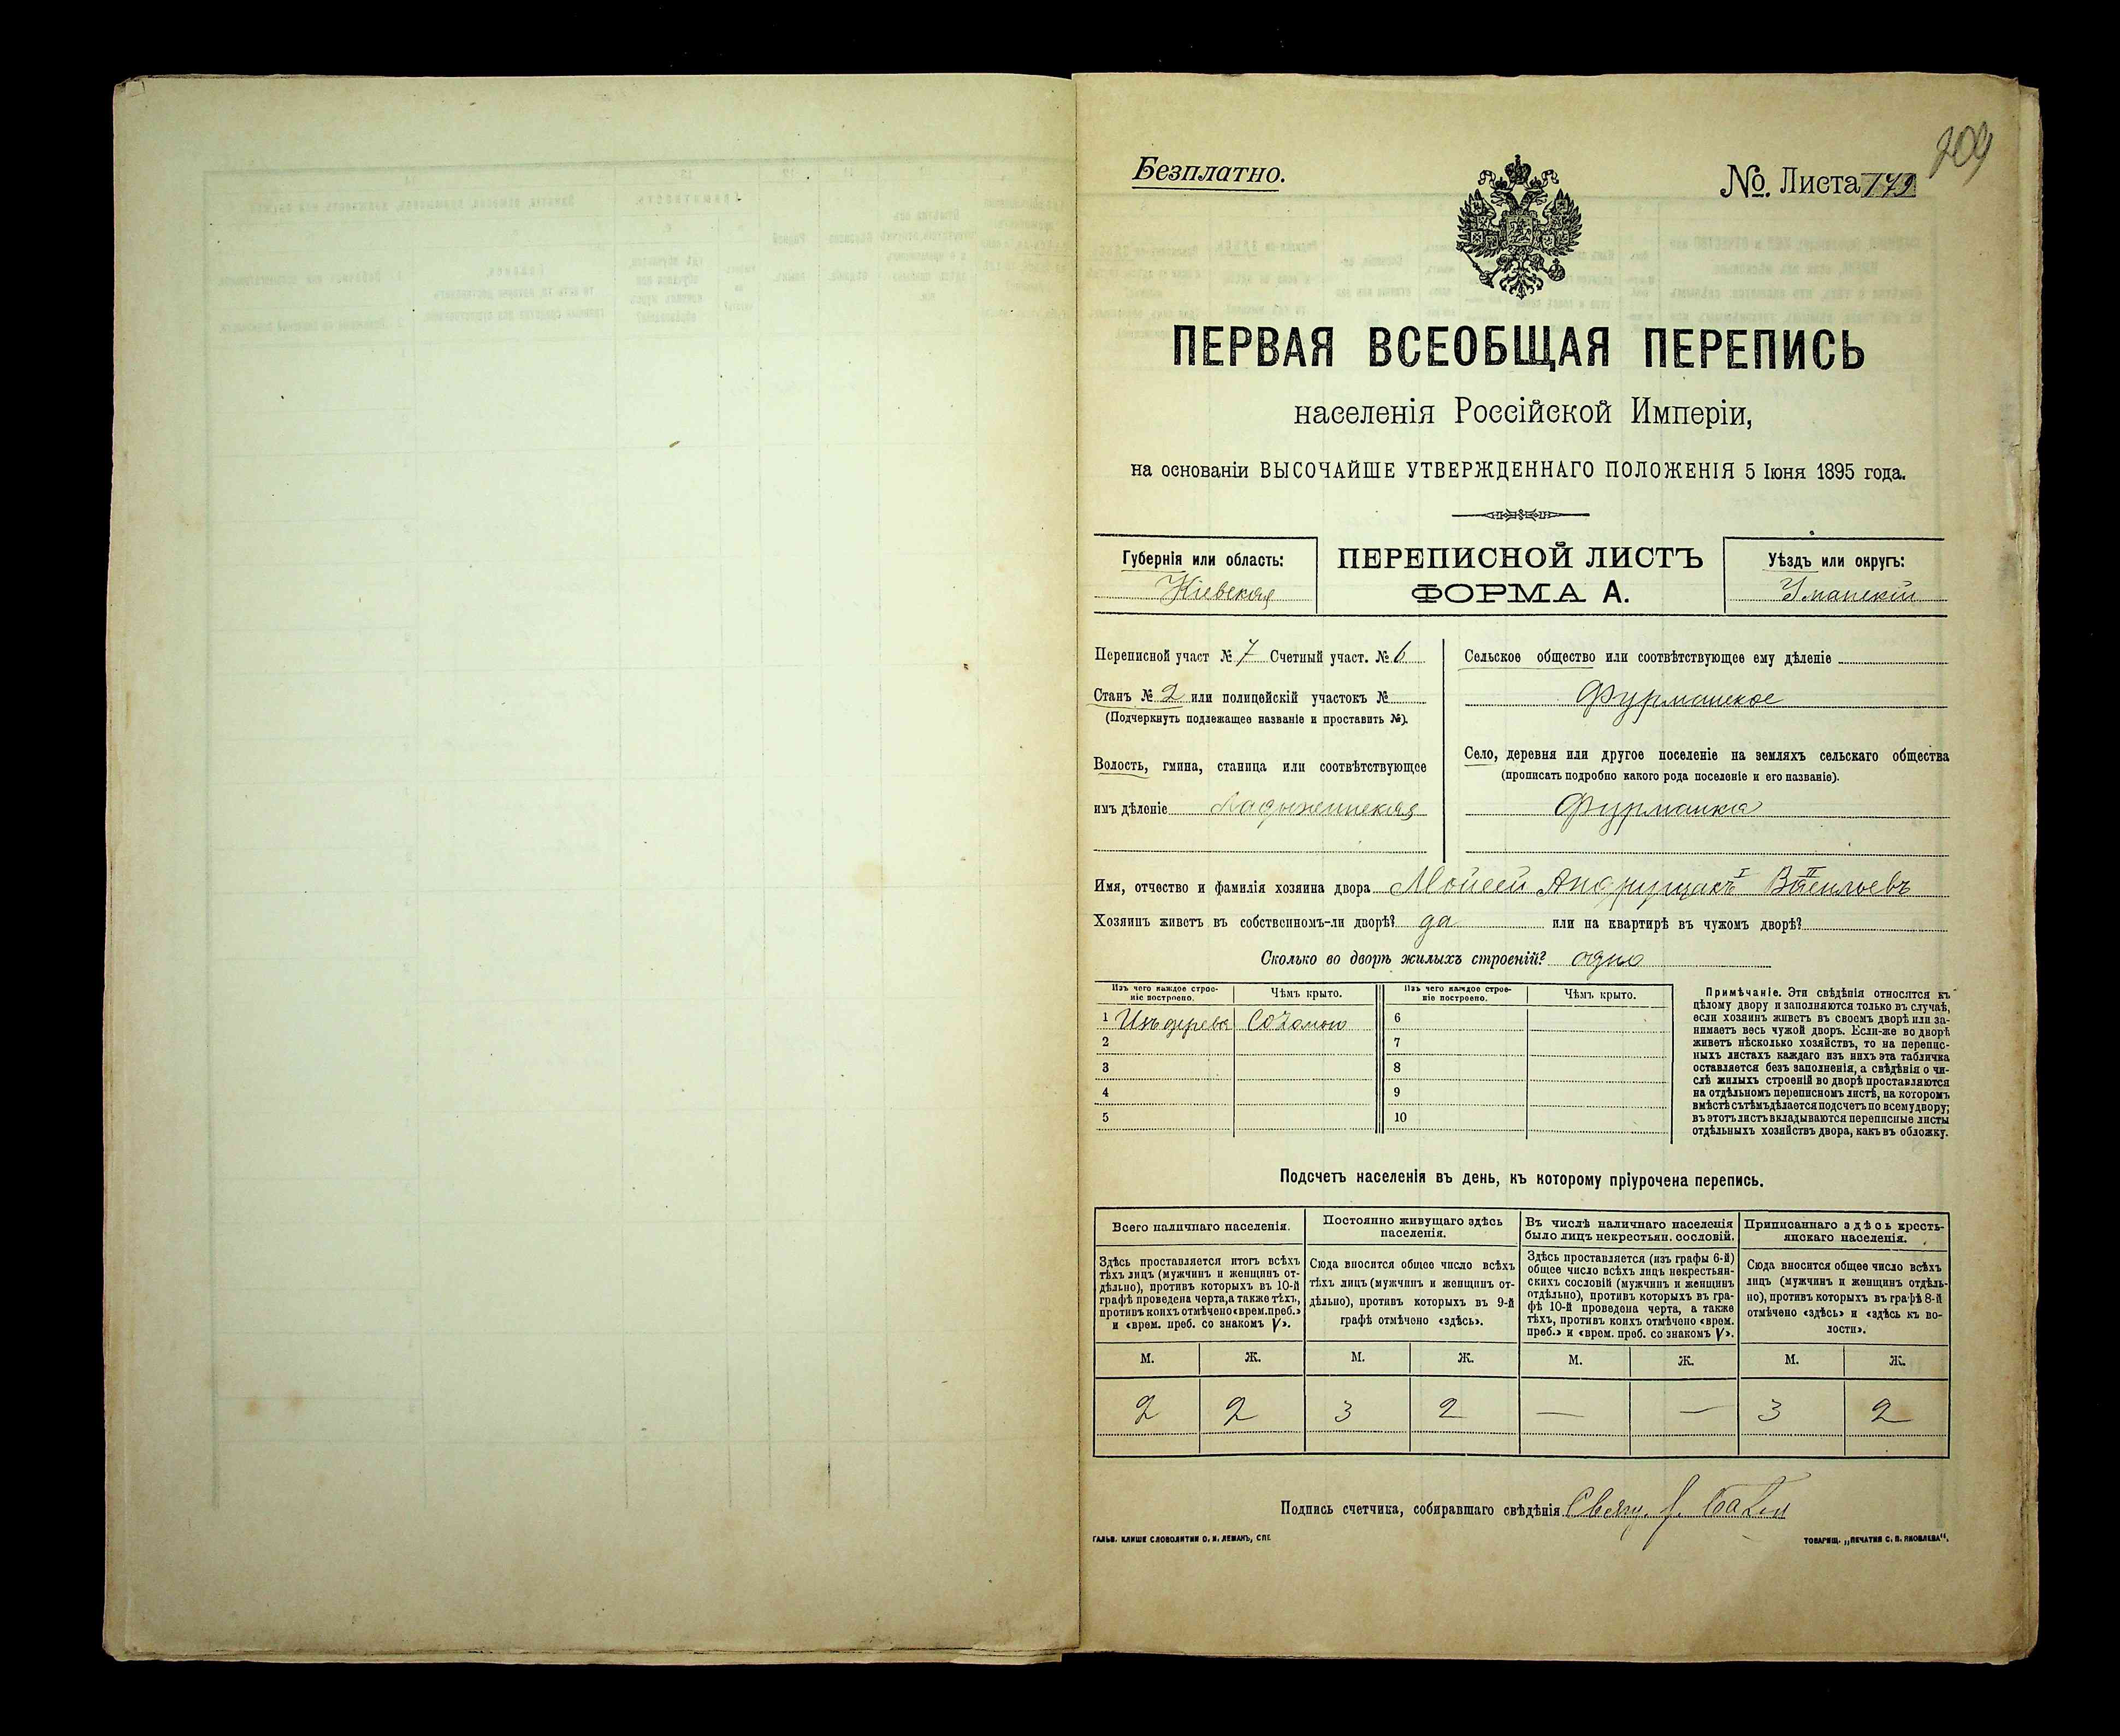 209
Безплатно.
№. Листа 179
ПЕРВАЯ ВСЕОБЩАЯ ПЕРЕПИСЬ
населенія Россійской Имперіи,
на основаніи ВЫСОЧАЙШЕ УТВЕРЖДЕННАГО ПОЛОЖЕНІЯ 5 Іюня 1895 года.
Губернія или область:
Кіевская
ПЕРЕПИСНОЙ ЛИСТЪ
ФОРМА А.
Уѣздъ или округъ:
Уманскій
Переписной участ № 7 Счетный участ. № 6
Станъ № 2 или полицейскій участокъ №
(Подчеркнуть подлежащее названіе и проставить №).
Волость, гмина, станица или соотвѣтствующее
имъ дѣленіе Ладыженская
Сельское общество или соотвѣтствующее ему дѣленіе
Фурманское
Село, деревня или другое поселеніе на земляхъ сельскаго общества
(прописать подробно какого рода поселеніе и его названіе).
Фурманка
Имя, отчество и фамилія хозяина двора Мойсей Андрущакъ I Васильевъ II
Хозяинъ живетъ въ собственномъ-ли дворѣ? да или на квартирѣ въ чужомъ дворѣ?
Сколько во дворѣ жилыхъ строеній? одно
Изъ чего каждое строеніе построено.
Чѣмъ крыто.
Изъ чего каждое строеніе построено.
Чѣмъ крыто.
1 Изъ дерева Соломою 6
2 7
3 8
4 9
5 10
Примѣчаніе. Эти свѣдѣнія относятся къ
цѣлому двору и заполняются только въ случаѣ,
если хозяинъ живетъ въ своемъ дворѣ или за-
нимаетъ весь чужой дворъ. Если-же во дворѣ
живетъ нѣсколько хозяйствъ, то на перепис-
ныхъ листахъ каждаго изъ нихъ эта табличка
оставляется безъ заполненія, а свѣдѣнія о чи-
слѣ жилыхъ строеній во дворѣ проставляются
на отдѣльномъ переписномъ листѣ, на которомъ
вмѣстѣ съ тѣмъ дѣлается подсчетъ по всему двору;
въ этотъ листъ вкладываются переписные листы
отдѣльныхъ хозяйствъ двора, какъ въ обложку.
Подсчетъ населенія въ день, къ которому пріурочена перепись.
Всего наличнаго населенія.
Здѣсь проставляется итогъ всѣхъ
тѣхъ лицъ (мужчинъ и женщинъ от-
дѣльно), противъ которыхъ въ 10-й
графѣ проведена черта, а также тѣхъ,
противъ коихъ отмѣчено «врем. преб.»
и «врем. преб. со знакомъ V».
Постоянно живущаго здѣсь
населенія.
Сюда вносится общее число всѣхъ
тѣхъ лицъ (мужчинъ и женщинъ от-
дѣльно), противъ которыхъ въ 9-й
графѣ отмѣчено «здѣсь».
Въ числѣ наличнаго населенія
было лицъ некрестьян. сословій.
Здѣсь проставляется (изъ графы 6-й)
общее число всѣхъ лицъ некрестьян-
скихъ сословій (мужчинъ и женщинъ
отдѣльно), противъ которыхъ въ гра-
фѣ 10-й проведена черта, а также
тѣхъ, противъ коихъ отмѣчено «врем.
преб.» и «врем. преб. со знакомъ V».
Приписаннаго здѣсь кресть-
янскаго населенія.
Сюда вносится общее число всѣхъ
лицъ (мужчинъ и женщинъ отдѣль-
но), противъ которыхъ въ графѣ 8-й
отмѣчено «здѣсь» и «здѣсь къ во-
лости».
М. Ж. М. Ж. М. Ж. М. Ж.
2 2 3 2 — — 3 2
Подпись счетчика, собиравшаго свѣдѣнія
ГАЛЬВ. КЛИШЕ СЛОВОЛИТНИ О. И. ЛЕМАНЪ, СПБ.
ТОВАРИЩ. „ПЕЧАТНЯ С. П. ЯКОВЛЕВА“.